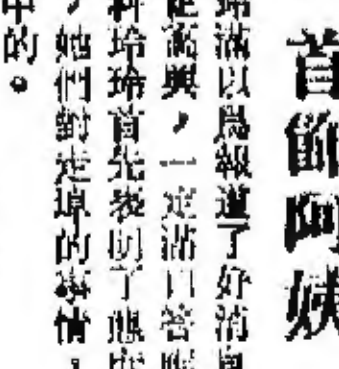 首飾阿姨
滿以爲報道了好消息
高興，一定滿口答應
玲玲首先表明了態度
，她們對走埠的事情，
中的。